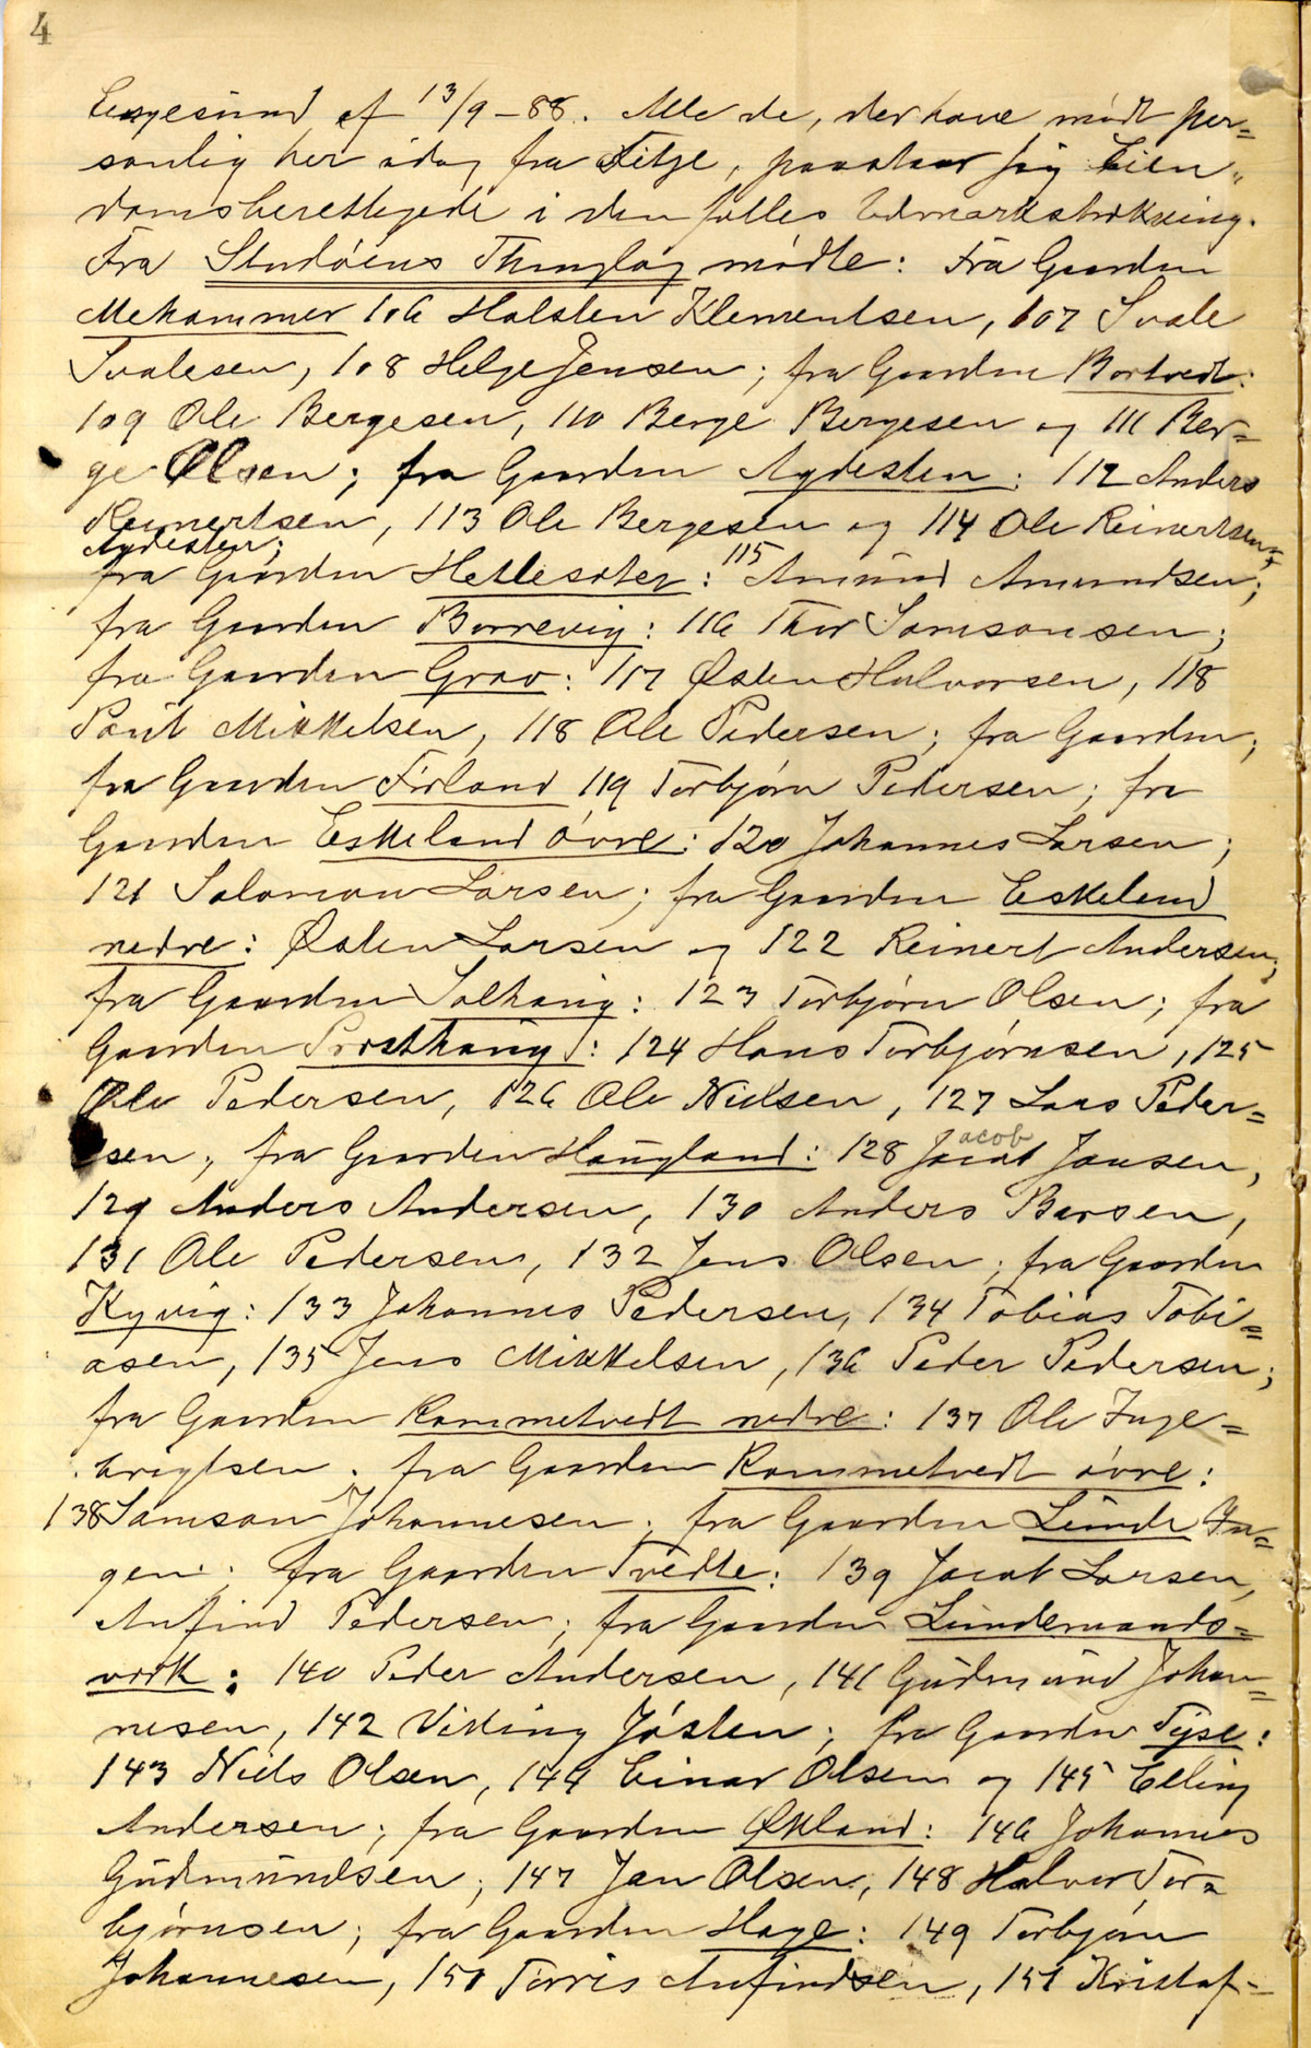 4
Engesund af 13/9-88. Alle de, der have mødt per=
sonlig her idag fra Fitje, paastaar sig Eien„
domsberettigede i den fælles Udmarkstrækning.
Fra Stordøens Thinglag mødte: Fra Gaarden
Mehammer 106 Halsten Klementsen, 107 Svale
Svalesen, 108 Helge Jensen; fra Gaarden Bortvedt:
109 Ole Bergesen, 110 Berge Bergesen og 111 Ber=
ge Olsen; fra Gaarden Agdesten: 112 Anders
Reinertsen, 113 Ole Bergesen og 114 Ole Reinertsen
Agdesten;
fra Gaarden Hetlesæter: 115 Amund Amundsen;
fra Gaarden Borrevig: 116 Thor Samsonsen;
fra Gaarden Grov: 117 Østen Halvorsen, 118
Poul Mikkelsen, 118 Ole Pedersen; fra Gaarden;
fra Gaarden Førland 119 Torbjørn Pedersen; fra
Gaarden Eskeland øvre: 120 Johannes Larsen;
121 Salomon Larsen; fra Gaarden Eskeland
nedre: Østen Larsen og 122 Reinert Andersen;
fra Gaarden Solhaug: 123 Torbjørn Olsen; fra
Gaarden Prosthaug: 124 Hans Torbjørnsen, 125
Ole Pedersen, 126 Ole Nielsen, 127 Lars Peder=
sen; fra Gaarden Haugland: 128 Jacob Jacob Jansen,
129 Anders Andersen, 130 Anders Barsen,
131 Ole Pedersen, 132 Jens Olsen; fra Gaarden
Kyvig: 133 Johannes Pedersen, 134 Tobias Tobi=
asen, 135 Jens Mikkelsen, 136 Peder Pedersen;
fra Gaarden Rommetvedt nedre: 137 Ole Inge=
brigtsen. fra Gaarden Rommetvedt øvre:
138 Samson Johannesen; fra Gaarden Lunde In=
gen; fra Gaarden Tvedte: 139 Jacob Larsen,
Anfind Pedersen; fra Gaarden Lundemands=
værk: 140 Peder Andersen, 141 Gudmund Johan=
nesen, 142 Viking Jósten; fra Gaarden Tyse:
143 Niels Olsen, 144 Einar Olsen og 145 Elling
Andersen; fra Gaarden Økland: 146 Johannes
Gudmundsen; 147 Jan Olsen, 148 Halvor Tor=
bjørnsen; fra Gaarden Hage: 149 Torbjørn
Johannesen, 150 Torris Anfindsen, 151 Kristof=